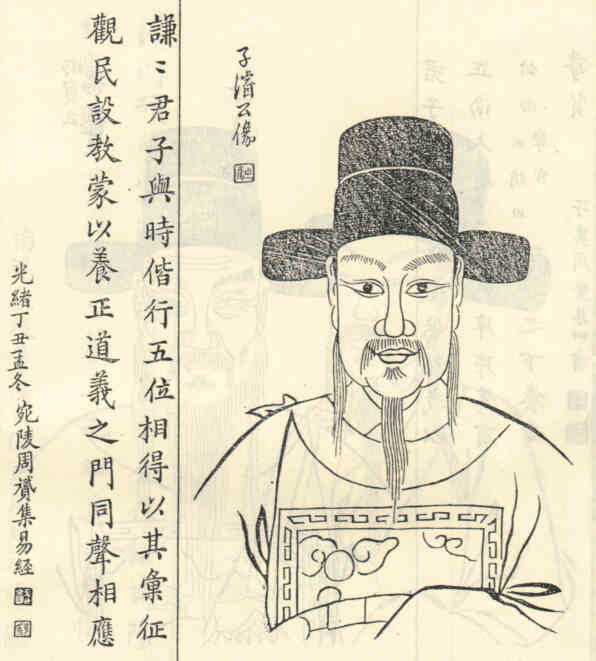 子濬公像
謙〻君子與時偕行五位相得以其彙征
觀民設教蒙以養正道義之門同聲相應
光緒丁丑孟冬宛陵周贇集易經